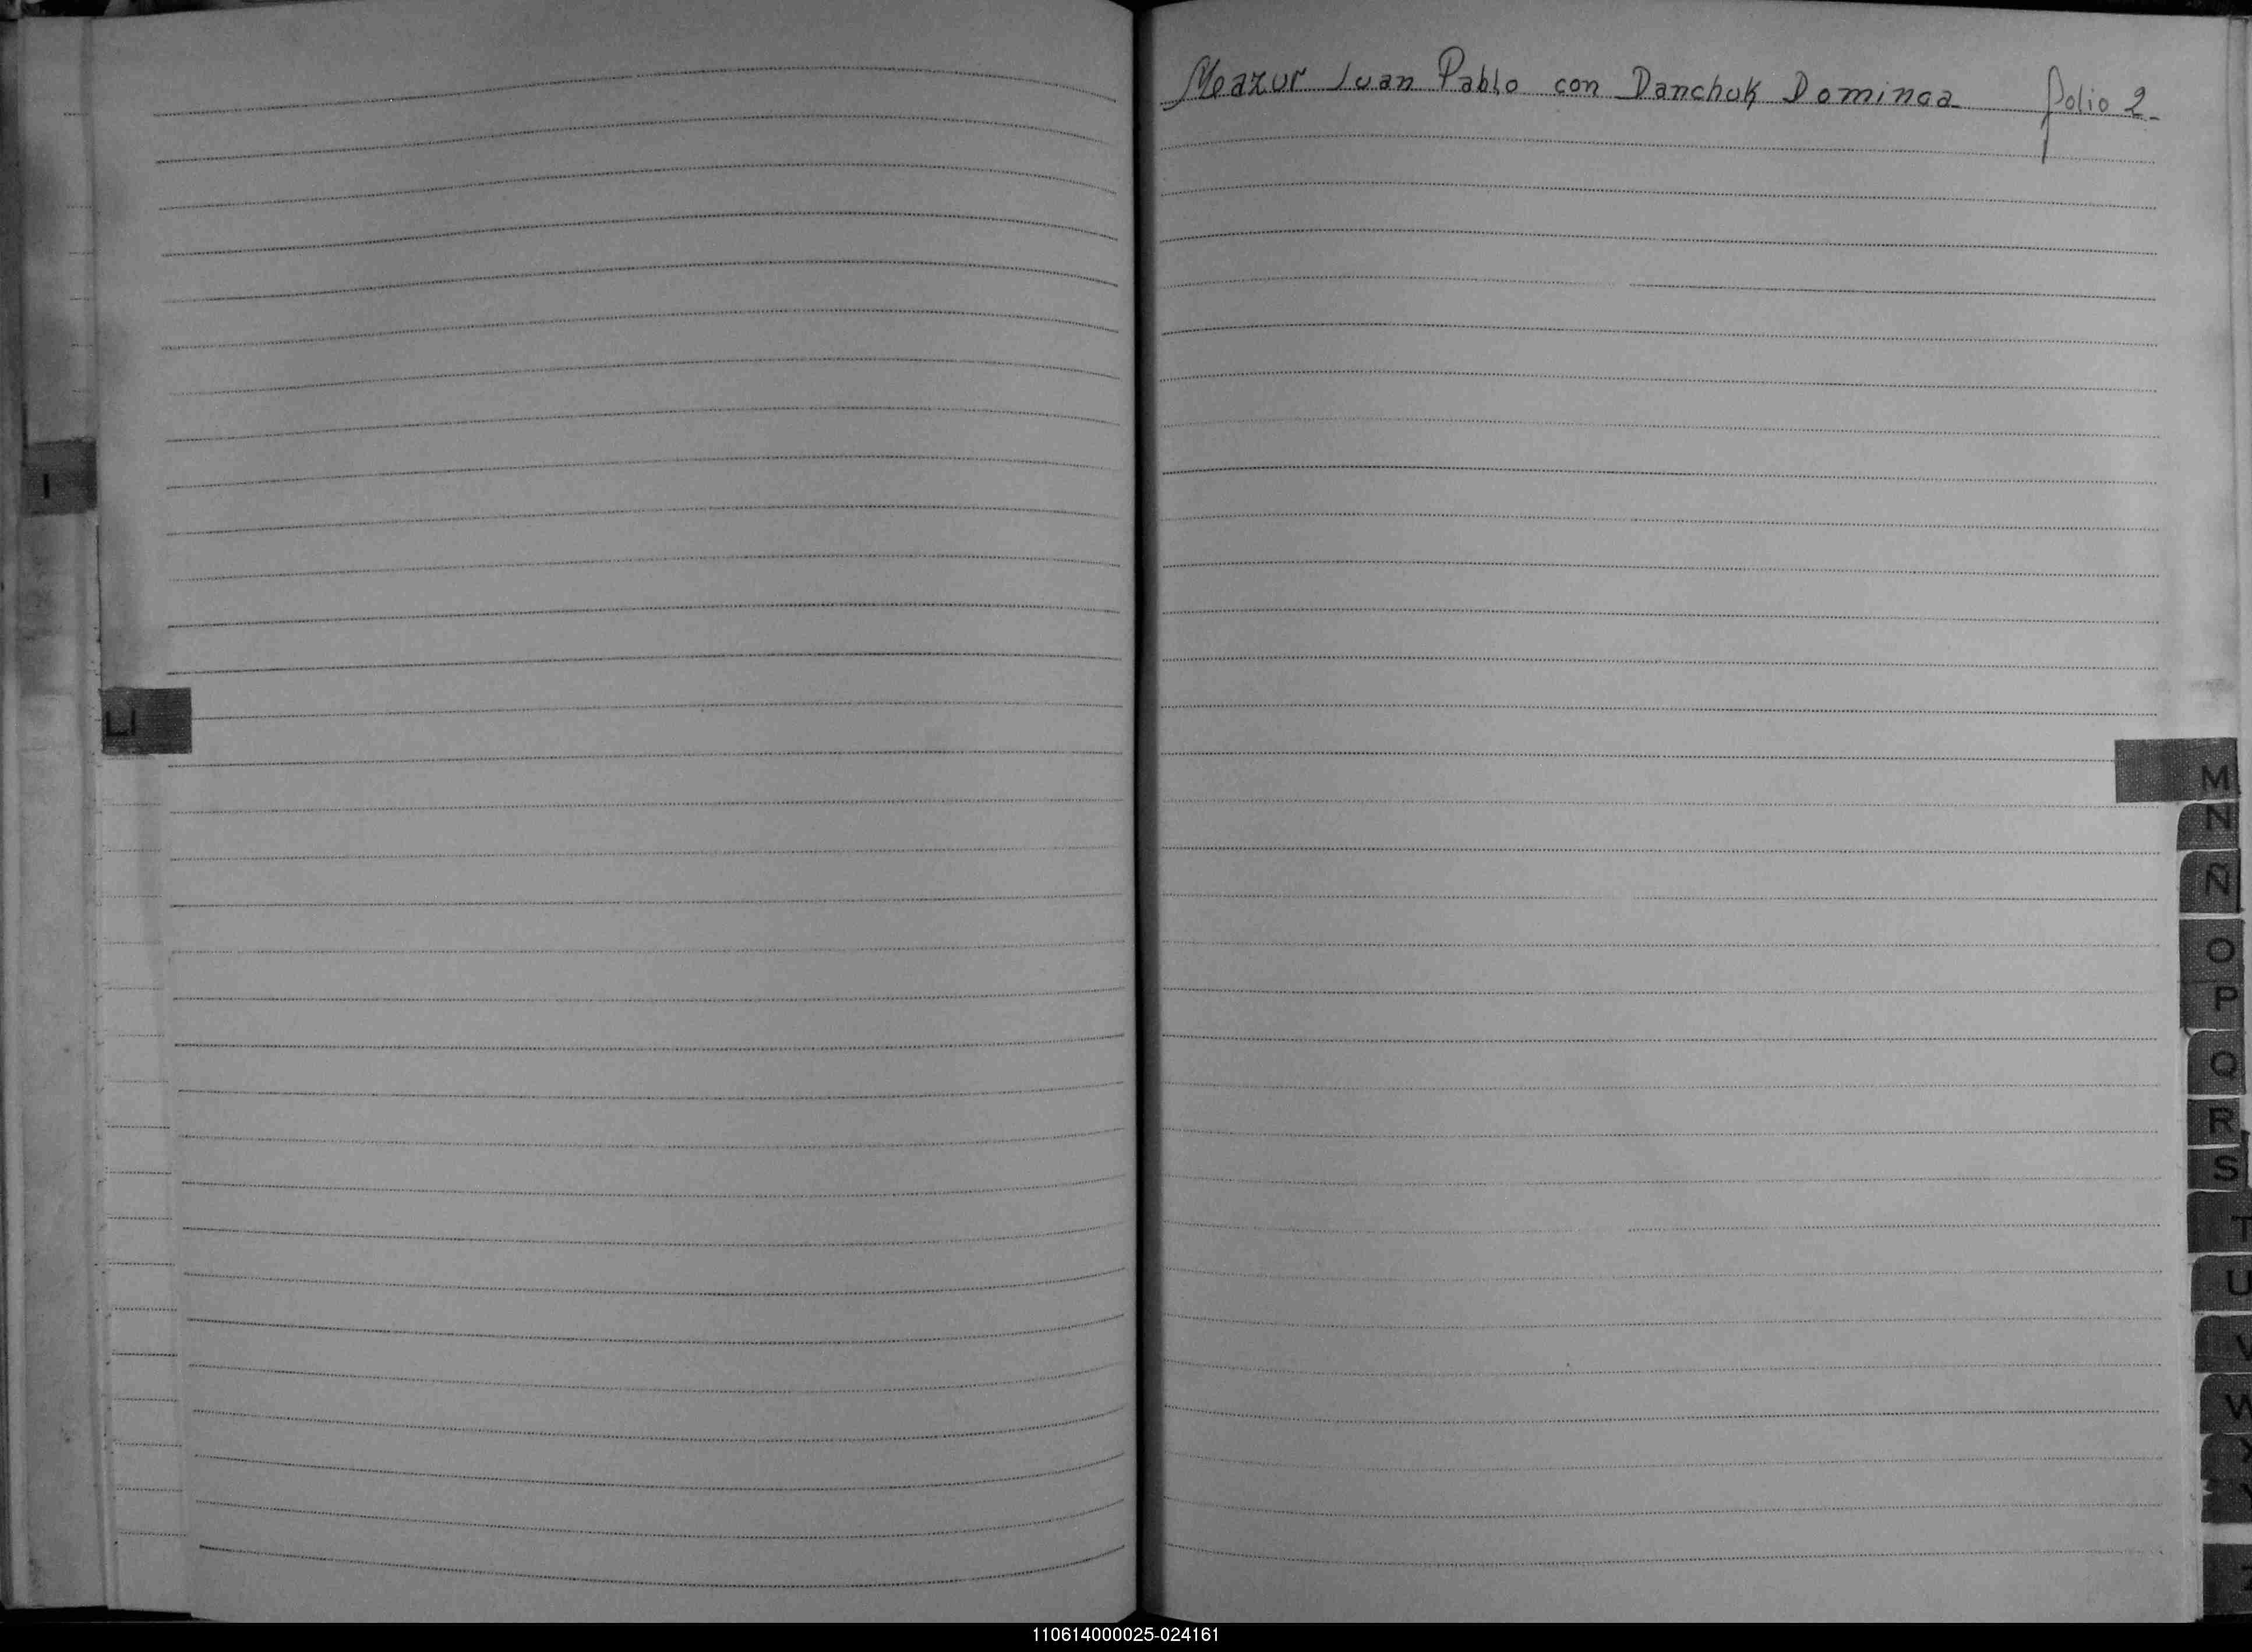 Meazur Juan Pablo con Danchuk Dominga folio 2.
I
Ll
M
N
Ñ
O
P
Q
R
S
T
U
V
W
X
Y
Z
110614000025-024161